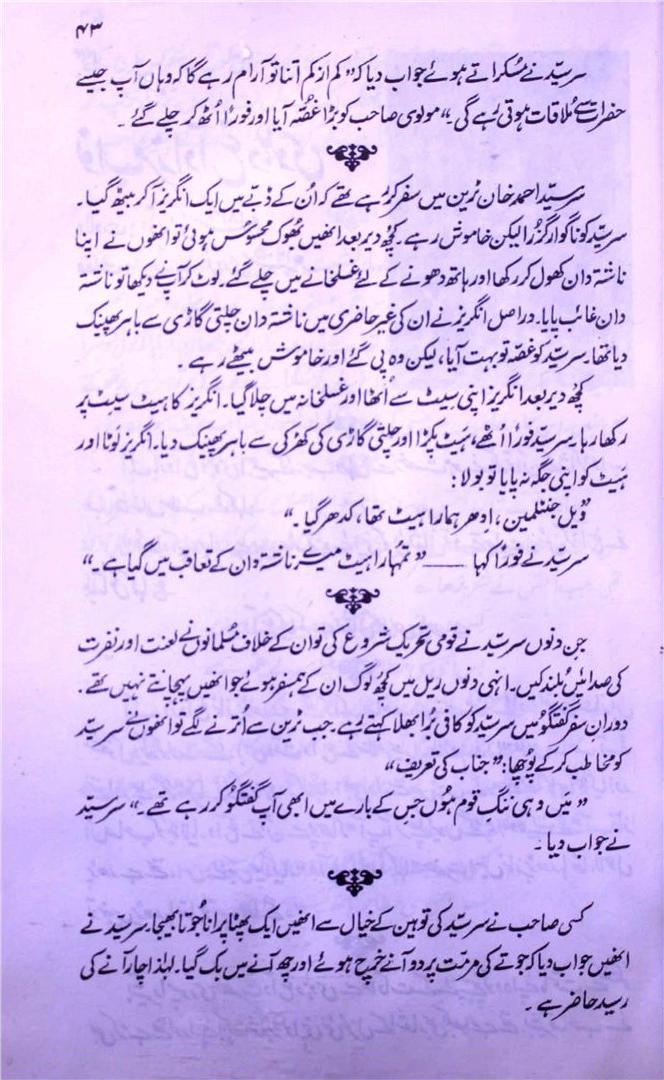 ۴۳
سرسیّد نے مُسکراتے ہوئے جواب دیا کہ “کم از کم اتنا تو آرام رہے گا کہ وہاں آپ جیسے
حضرات سے مُلاقات ہوتی رہے گی۔” مولوی صاحب کو بڑا غصّہ آیا اور فوراً اُٹھ کر چلے گئے۔
سرسیّد احمد خان ٹرین میں سفر کر رہے تھے کہ اُن کے ڈبّے میں ایک انگریز آ کر بیٹھ گیا۔
سرسیّد کو ناگوار گزرا لیکن خاموش رہے۔ کچھ دیر بعد انھیں بھوک محسوس ہوئی تو انھوں نے اپنا
ناشتہ دان کھول کر رکھا اور ہاتھ دھونے کے لئے غسلخانے میں چلے گئے۔ لوٹ کر آپ نے دیکھا تو ناشتہ
دان غائب پایا۔ دراصل انگریز نے ان کی غیر حاضری میں ناشتہ دان چلتی گاڑی سے باہر پھینک
دیا تھا۔ سرسیّد کو غصّہ تو بہت آیا، لیکن وہ پی گئے اور خاموش بیٹھے رہے۔
کچھ دیر بعد انگریز اپنی سیٹ سے اُٹھا اور غسلخانہ میں چلا گیا۔ انگریز کا ہیٹ سیٹ پر
رکھا رہا۔ سرسیّد فوراً اُٹھے، ہیٹ پکڑا اور چلتی گاڑی کی کھڑکی سے باہر پھینک دیا۔ انگریز لوٹا اور
ہیٹ کو اپنی جگہ نہ پایا تو بولا:
“ویل جنٹلمین، ادھر ہمارا ہیٹ تھا، کدھر گیا۔”
سرسیّد نے فوراً کہا —— “تمہارا ہیٹ میرے ناشتہ دان کے تعاقب میں گیا ہے۔”
جن دنوں سرسیّد نے قومی تحریک شروع کی تو ان کے خلاف مُسلمانوں نے لعنت اور نفرت
کی صدائیں بُلند کیں۔ انہی دنوں ریل میں کچھ لوگ ان کے ہمسفر ہوئے جو انھیں پہچانتے نہیں تھے۔
دورانِ سفر گفتگو میں سرسیّد کو کافی بُرا بھلا کہتے رہے۔ جب ٹرین سے اُترنے لگے تو انھوں نے سرسیّد
کو مخاطب کر کے پوچھا: “جناب کی تعریف”
“میں وہی ننگِ قوم ہوں جس کے بارے میں ابھی آپ گفتگو کر رہے تھے۔” سرسیّد
نے جواب دیا۔
کسی صاحب نے سرسیّد کی توہین کے خیال سے انھیں ایک پھٹا پرانا جُوتا بھیجا۔ سرسیّد نے
انھیں جواب دیا کہ جوتے کی مرمّت پر دو آنے خرچ ہوئے اور چھ آنے میں بک گیا۔ لہٰذا چار آنے کی
رسید حاضر ہے۔